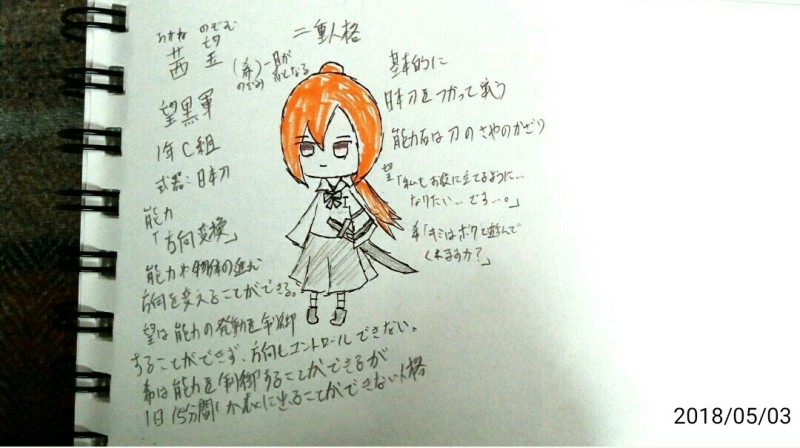 あかね のぞむ
茜 望
(希)
のぞみ
望黒軍
1年C組
武器:日本刀
能力
「方向変換」
能力や物体の進む
方向を変えることができる。
望は能力の発動を制御
することができず、方向もコントロールできない。
希は能力を制御することができるが
1日15分間しか表に出ることができない人格
二重人格
基本的に
日本刀をつかって戦う
能力石は刀のさやのかざり
望「私もお役に立てるように…
なりたい…です…。」
希「キミはボクと遊んで
くれますか?」
2018/05/03